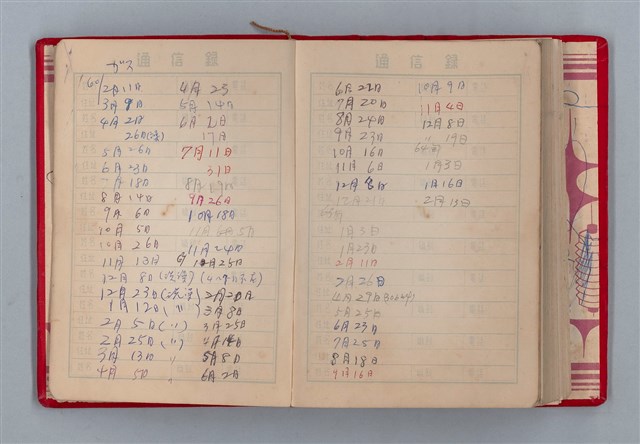 通信錄
ガス
'60
2月11日
3月9日
4月2日
26日(洗)
5月26日
6月23日
7月18日
8月14日
9月6日
10月5日
10月26日
11月13日
12月8日(洗濯)
12月23日(洗濯)
1月12日(〃)
2月5日(〃)
2月25日(〃)
3月13日 〃
4月5日
4月25
5月14日
6月2日
17日
7月11日
31日
8月19日
9月26日
10月18日
11月24日
12月25日
2月20日
3月8日
3月25日
4月14日
5月8日
6月2日
通信錄
6月22日
7月20日
8月24日
9月23日
10月16日
11月6日
12月8日
12月21日
1月3日
1月23日
2月11日
2月26日
4月29日
5月25日
6月23日
7月25日
8月18日
9月16日
10月9日
11月4日
12月8日
〃 19日
64年
1月3日
1月16日
2月15日